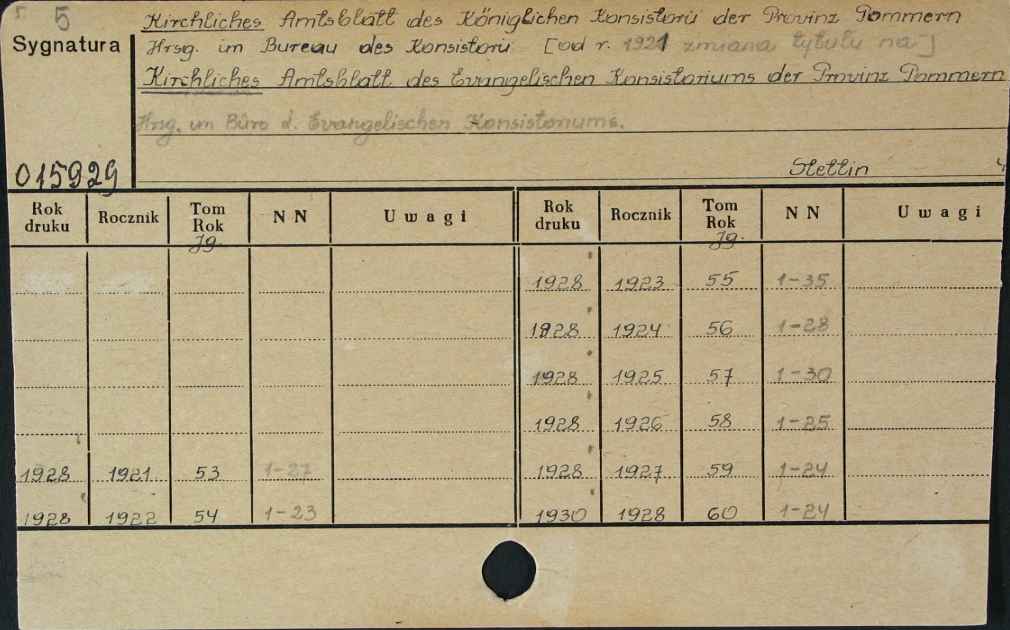 5
Sygnatura
015929
Kirchliches Amtsblatt des Königlichen Konsistorii der Provinz Pommern
Hrsg. im Bureau des Konsistorii [od r. 1921 zmiana tytułu na]
Kirchliches Amtsblatt des Evangelischen Konsistoriums der Provinz Pommern
Hrsg. im Büro d. Evangelischen Konsistoriums.
Stettin 4
Rok druku Rocznik Tom Rok Jg. NN Uwagi Rok druku Rocznik Tom Rok Jg. NN Uwagi
1928 1923 55 1-35
1928 1924 56 1-28
1928 1925 57 1-30
1928 1926 58 1-25
1928 1921 53 1-27 1928 1927 59 1-24
1928 1922 54 1-23 1930 1928 60 1-24